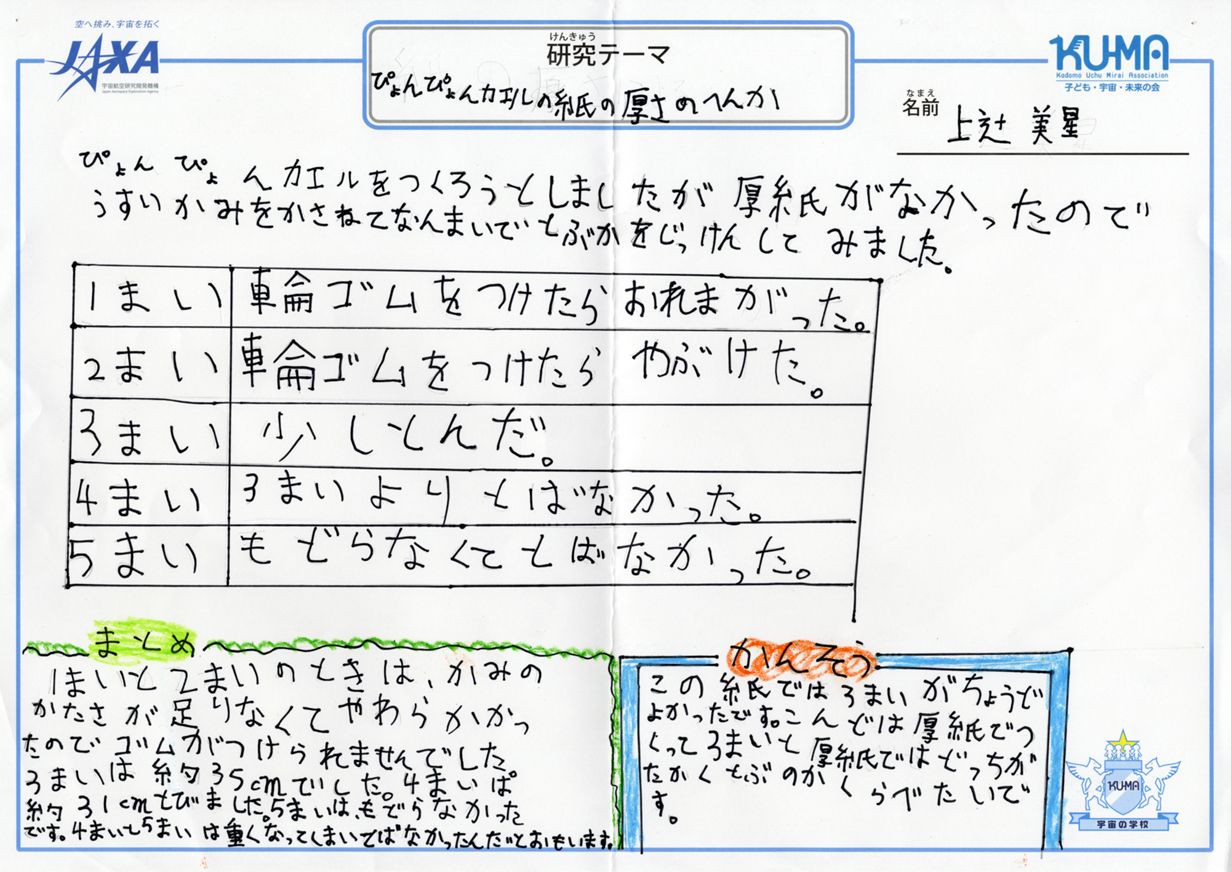 空へ挑み、宇宙を拓く
JAXA
宇宙航空研究開発機構
Japan Aerospace Exploration Agency
けんきゅう
研究テーマ
ぴょんぴょんカエルの紙の厚さのへんか
KU-MA
Kodomo Uchu Mirai Association
子ども・宇宙・未来の会
なまえ
名前 上辻 美星
ぴょん ぴょんカエルをつくろうとしましたが 厚紙がなかったので
うすいかみをかさねてなんまいでとぶかをじっけんして みました。
1まい 車輪ゴムをつけたら おれまがった。
2まい 車輪ゴムをつけたら やぶけた。
3まい 少しとんだ。
4まい 3まいより とばなかった。
5まい もどらなくてとばなかった。
まとめ
1まいと2まいのときは、かみの
かたさが足りなくてやわらかかっ
たのでゴムがつけられませんでした
3まいは約35cmでした。4まいは
約31cmとびました。5まいは、もどらなかった
です。4まいと5まいは重くなってしまいとばなかったんだとおもいます。
かんそう
この紙では3まいがちょうど
よかったです。こんどは厚紙でつ
くって3まいと厚紙ではどっちが
たかくとぶのかくらべたいで
す。
KU-MA
宇宙の学校